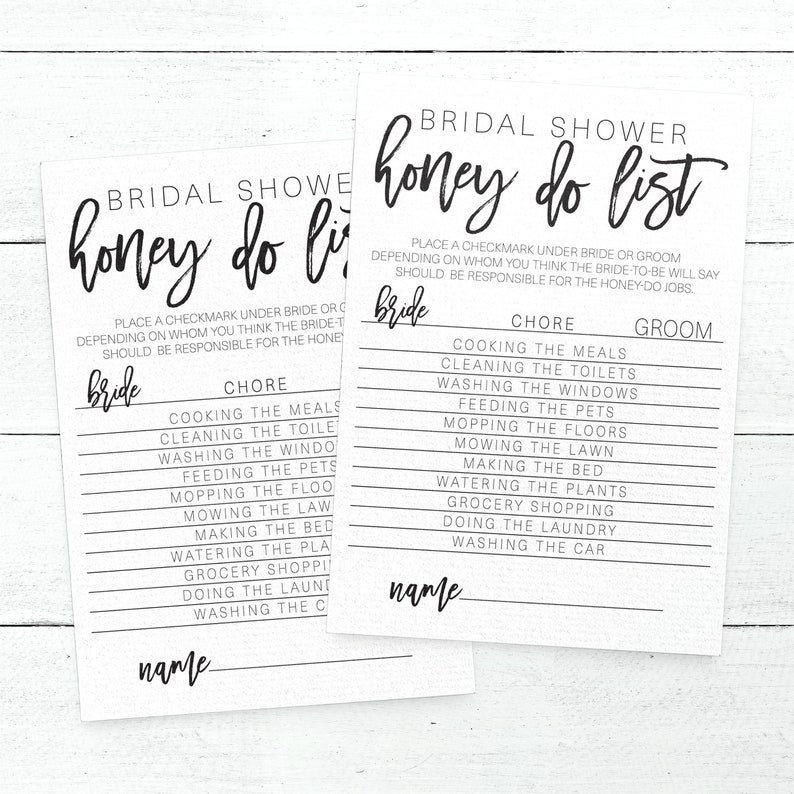 BRIDAL SHOWER
honey do lis
PLACE A CHECKMARK UNDER BRIDE OR G
DEPENDING ON WHOM YOU THINK THE BRIDE-T
SHOULD BE RESPONSIBLE FOR THE HONEY
bride CHORE
COOKING THE MEALS
CLEANING THE TOILE
WASHING THE WINDO
FEEDING THE PETS
MOPPING THE FLOO
MOWING THE LAW
MAKING THE BED
WATERING THE PLA
GROCERY SHOPPI
DOING THE LAUND
WASHING THE C
name
BRIDAL SHOWER
honey do list
PLACE A CHECKMARK UNDER BRIDE OR GROOM
DEPENDING ON WHOM YOU THINK THE BRIDE-TO-BE WILL SAY
SHOULD BE RESPONSIBLE FOR THE HONEY-DO JOBS.
bride CHORE GROOM
COOKING THE MEALS
CLEANING THE TOILETS
WASHING THE WINDOWS
FEEDING THE PETS
MOPPING THE FLOORS
MOWING THE LAWN
MAKING THE BED
WATERING THE PLANTS
GROCERY SHOPPING
DOING THE LAUNDRY
WASHING THE CAR
name